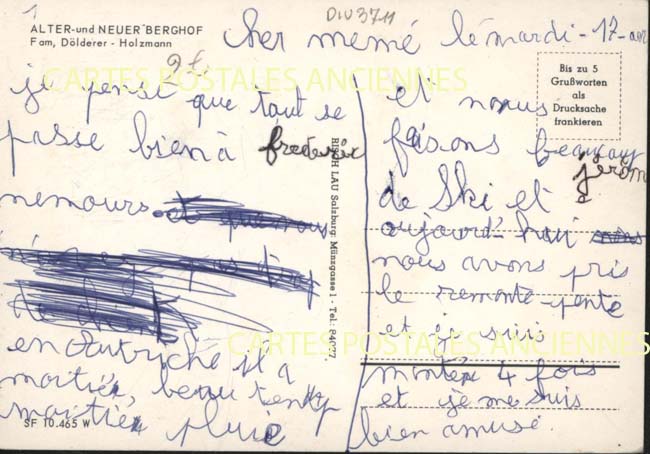 1
DIV3711
ALTER-und NEUER BERGHOF
Fam, Dölderer - Holzmann
cher memé le mardi - 17-avr
2€
CARTES POSTALES ANCIENNES
je pense que tout se
passe bien à frederic
nemours
en Autriche il a
moitier, beau temp
moitier pluie
SF 10.465 W
RISCH LAU Salzburg, Münzgasse 1 - Tel.
Bis zu 5
Grußworten
als
Drucksache
frankieren
et nous
faisons beaucoup
jérom
de Ski et
aujourd'hui
nous avons pris
le remonte pente
et je suis
CARTES POSTALES ANCIENNES
montér 4 fois
et je me suis
bien amusé.